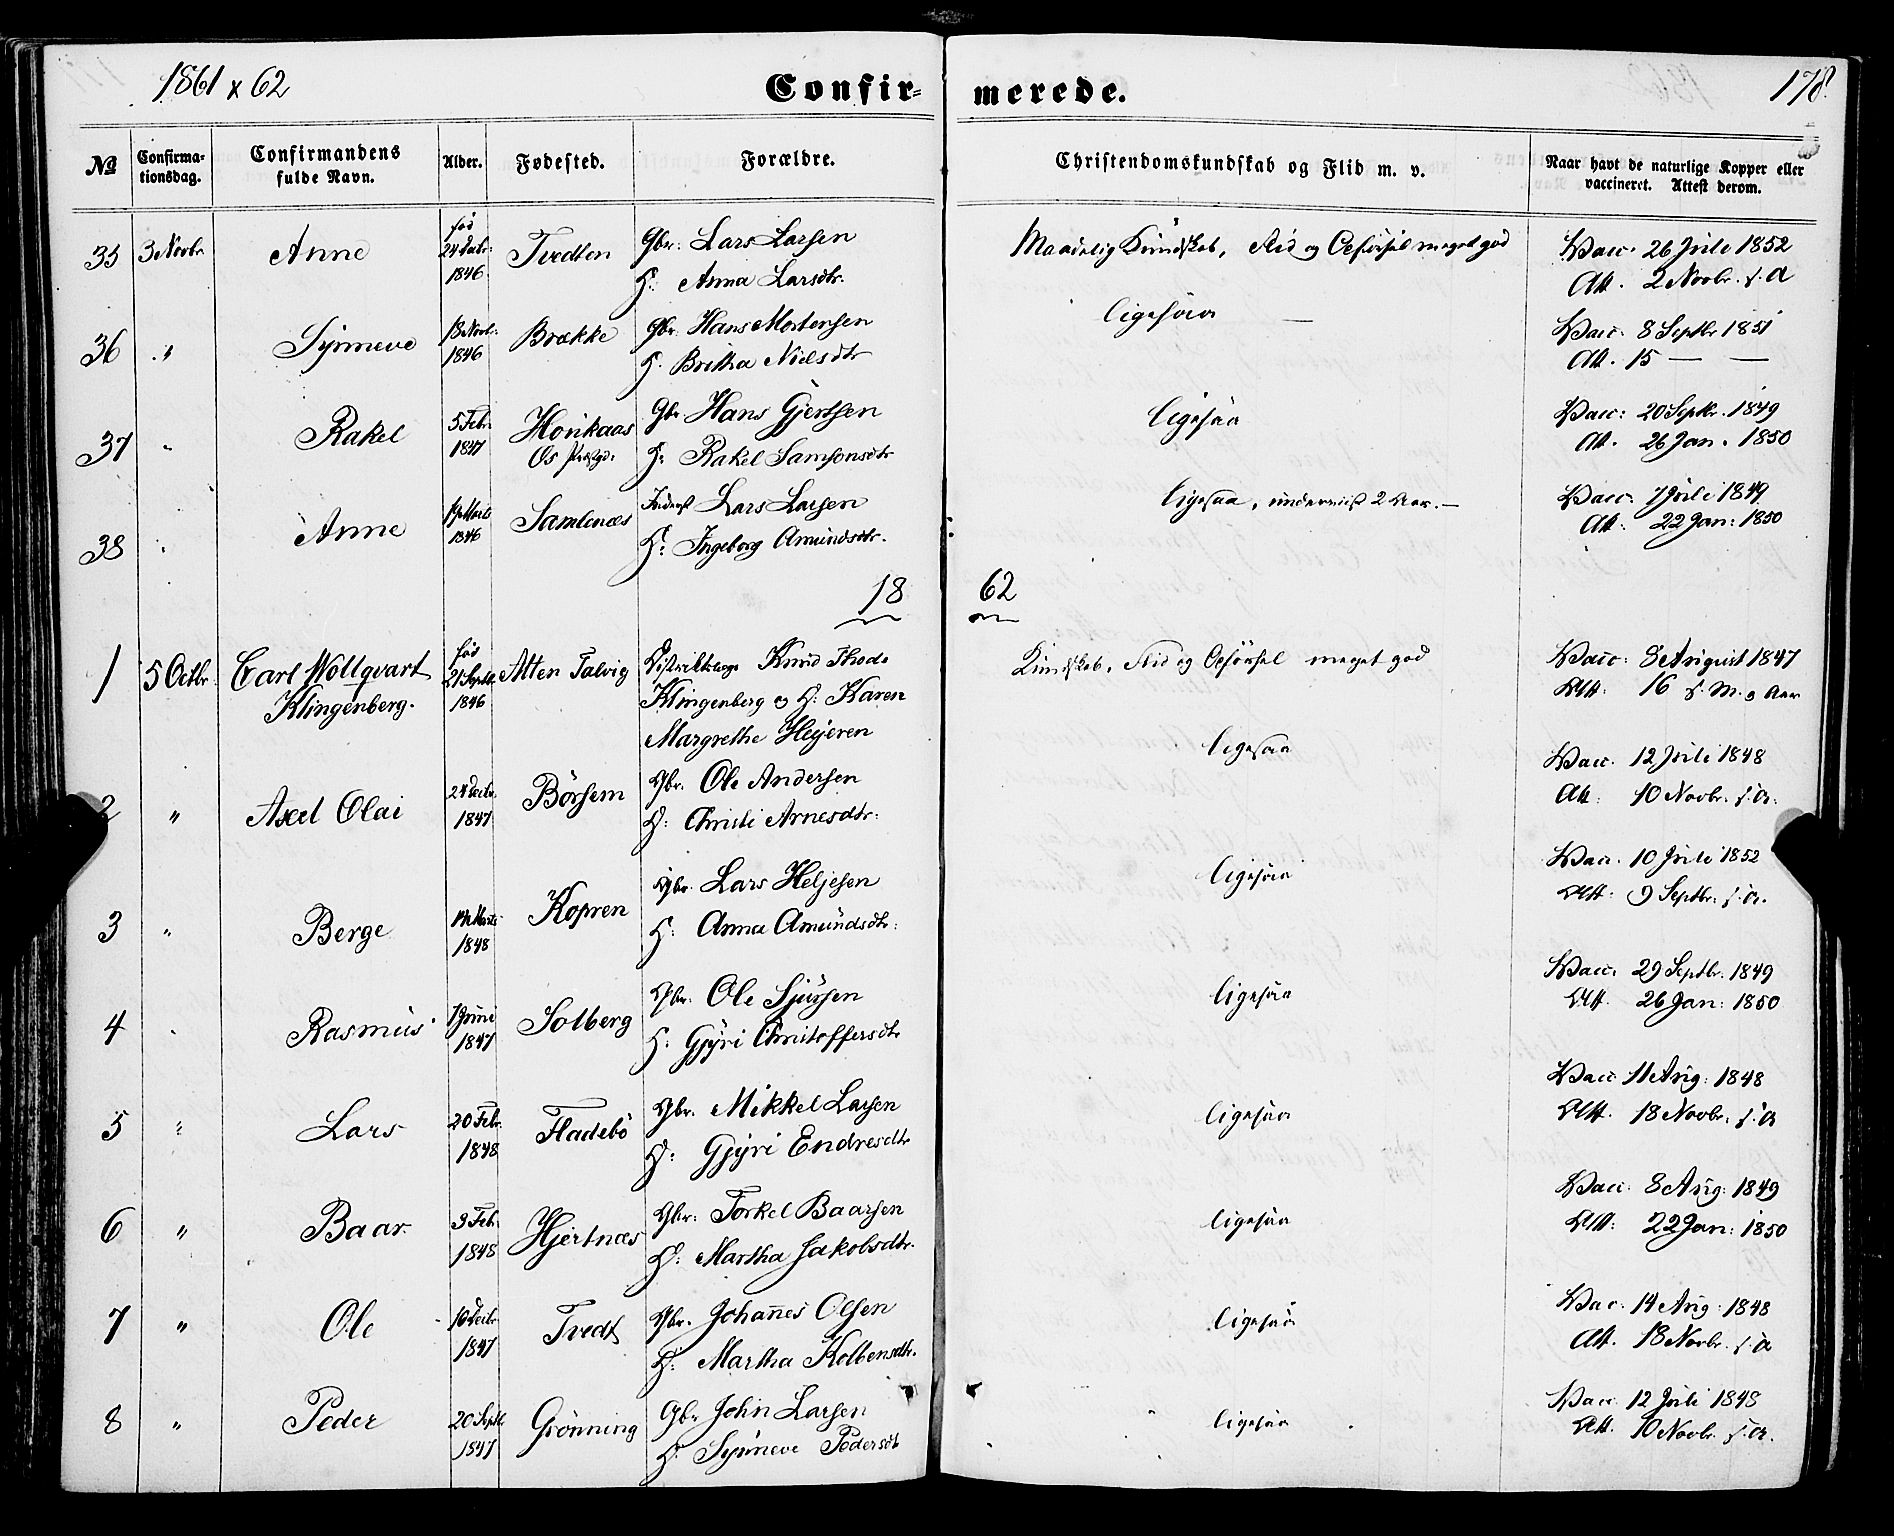 1861 x 62
Confir=
merede.
178.
No
Confirma-
tionsdag.
Confirmandens
fulde Navn.
Alder.
Fødested.
Forældre.
Christendomskundskab og Flid m. v.
Naar havt de naturlige Kopper eller
vaccineret. Attest derom.
35 3 Novbr. Anne fød 24 Decbr: 1846 Tvedten Gbr: Lars Larsen
H: Anna Larsdtr.
Maadelig Kundskab, Flid og Opførsel meget god
Vacc: 26 Juli 1852
Att. 2 Novbr. s. A
36 " Synneve 18 Novbr: 1846 Brække Gbr. Hans Mortensen
H. Britha Nielsdtr
ligesaa —
Vacc: 8 Septbr 1851
Att. 15 — —
37 " Rakel 5 Febr: 1847 Hovikaas
Os Præstgd:
Gbr Hans Gjertsen
H: Rakel Samsonsdtr
ligesaa
Vacc: 20 Septbr. 1849
Att. 26 Jan. 1850
38 " Anne Marts 1846 Samlenæs Inderst Lars Larsen
H: Ingeborg Amundsdtr.
ligesaa, underviist 2 Aar. —
Vacc. 7 Juli 1849
Att. 22 Jan: 1850
18 62
1 5 Octbr. Carl Wollqvart
Klingenberg.
fød 21 Septbr. 1846 Alten Talvig Districtslæge Knud Thode
Klingenberg og H: Karen
Margrethe Heyeren
Kundskab, Flid og Opførsel meget god
Vacc: 8 August 1847
Att: 16 s. M. o Aar
2 " Axel Olai 24 Decbr. 1847 Børsem Gbr. Ole Andersen
H: Christi Arnesdtr:
ligesaa
Vacc. 12 Juli 1848
Att: 10 Novbr. s. A.
3 " Berge Marts 1848 Kopren Gbr. Lars Heljesen
H: Anna Amundsdtr:
ligesaa
Vacc. 10 Juli 1852
Att: 9 Septbr. s. A.
4 " Rasmus Juni 1847 Solberg Gbr. Ole Sjursen
H: Gjyri Christoffersdtr
ligesaa
Vacc. 29 Septbr. 1849
Att. 26 Jan: 1850
5 " Lars 20 Febr. 1848 Fladebø Gbr. Mikkel Larsen
H: Gjyri Endresdtr
ligesaa
Vacc. 11 Aug: 1848
Att. 18 Novbr. s. A
6 " Baar 3 Feb. 1848 Hjertnæs Gbr: Torkel Baarsen
H: Martha Jakobsdtr.
ligesaa
Vacc. 8 Aug: 1849
Att: 22 Jan: 1850
7 " Ole 10 Decbr. 1847 Tvedt Gbr. Johannes Olsen
H: Martha Kolbensdtr.
ligesaa
Vacc: 14 Aug: 1848
Att. 18 Novbr. s. A
8 " Peder 20 Septbr 1847 Grønning Gbr John Larsen
H. Synneve Pedersdt
ligesaa
Vacc 12 Juli 1848
Att. 10 Novbr. s. A.